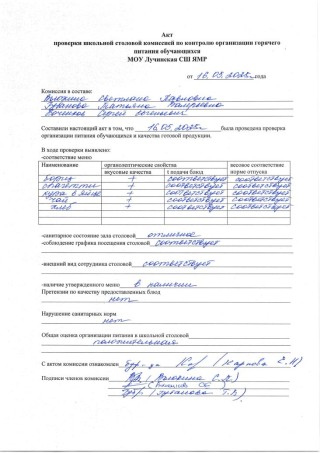 Акт
проверки школьной столовой комиссией по контролю организации горячего
питания обучающихся
МОУ Лучинская СШ ЯМР
от 16.05.2025 года
Комиссия в составе:
Светлана Павловна
Татьяна Валерьевна
Сергей
Составили настоящий акт в том, что 16.05.2025г. была проведена проверка
организации питания обучающихся и качества готовой продукции.
В ходе проверки выявлено:
-соответствие меню
Наименование органолептические свойства весовое соответствие
вкусовые качества t подачи блюд норме отпуска
борщ + соответствует соответствует
спагетти + соответствует соответствует
кура в яйце + соответствует соответствует
чай + соответствует соответствует
хлеб + соответствует соответствует
-санитарное состояние зала столовой отличное
-соблюдение графика посещения столовой соответствует
-внешний вид сотрудника столовой соответствует
-наличие утвержденного меню в наличии
Претензии по качеству предоставленных блюд
нет
Нарушение санитарных норм
нет
Общая оценка организации питания в школьной столовой
положительная
С актом комиссии ознакомлен
Подписи членов комиссии